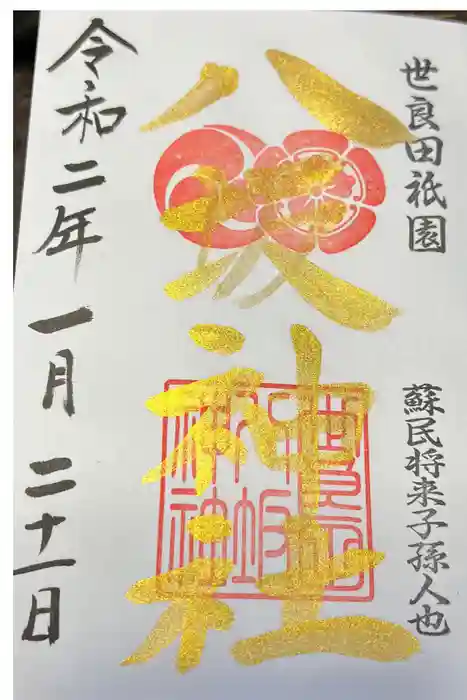 世良田祇園
蘇民将来子孫人也
八坂神社
令和二年一月二十一日